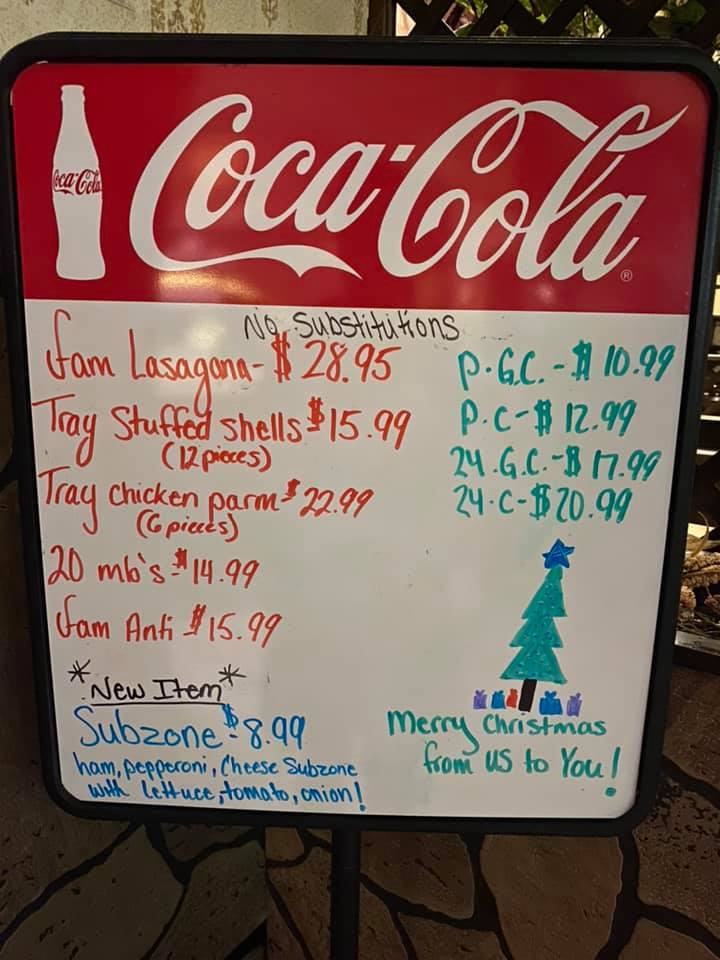 Coca-Cola
Coca-Cola®
No Substitutions
fam Lasagana - $28.95
Tray Stuffed shells $15.99
(12 pieces)
Tray chicken parm $22.99
(6 pieces)
20 mb's - $14.99
fam Anti $15.99
P.G.C. - $10.99
P.C - $12.99
24.G.C. - $17.99
24.C - $20.99
*New Item*
Subzone - $8.99
ham, pepperoni, Cheese Subzone
with lettuce, tomato, onion!
Merry Christmas
from US to You!